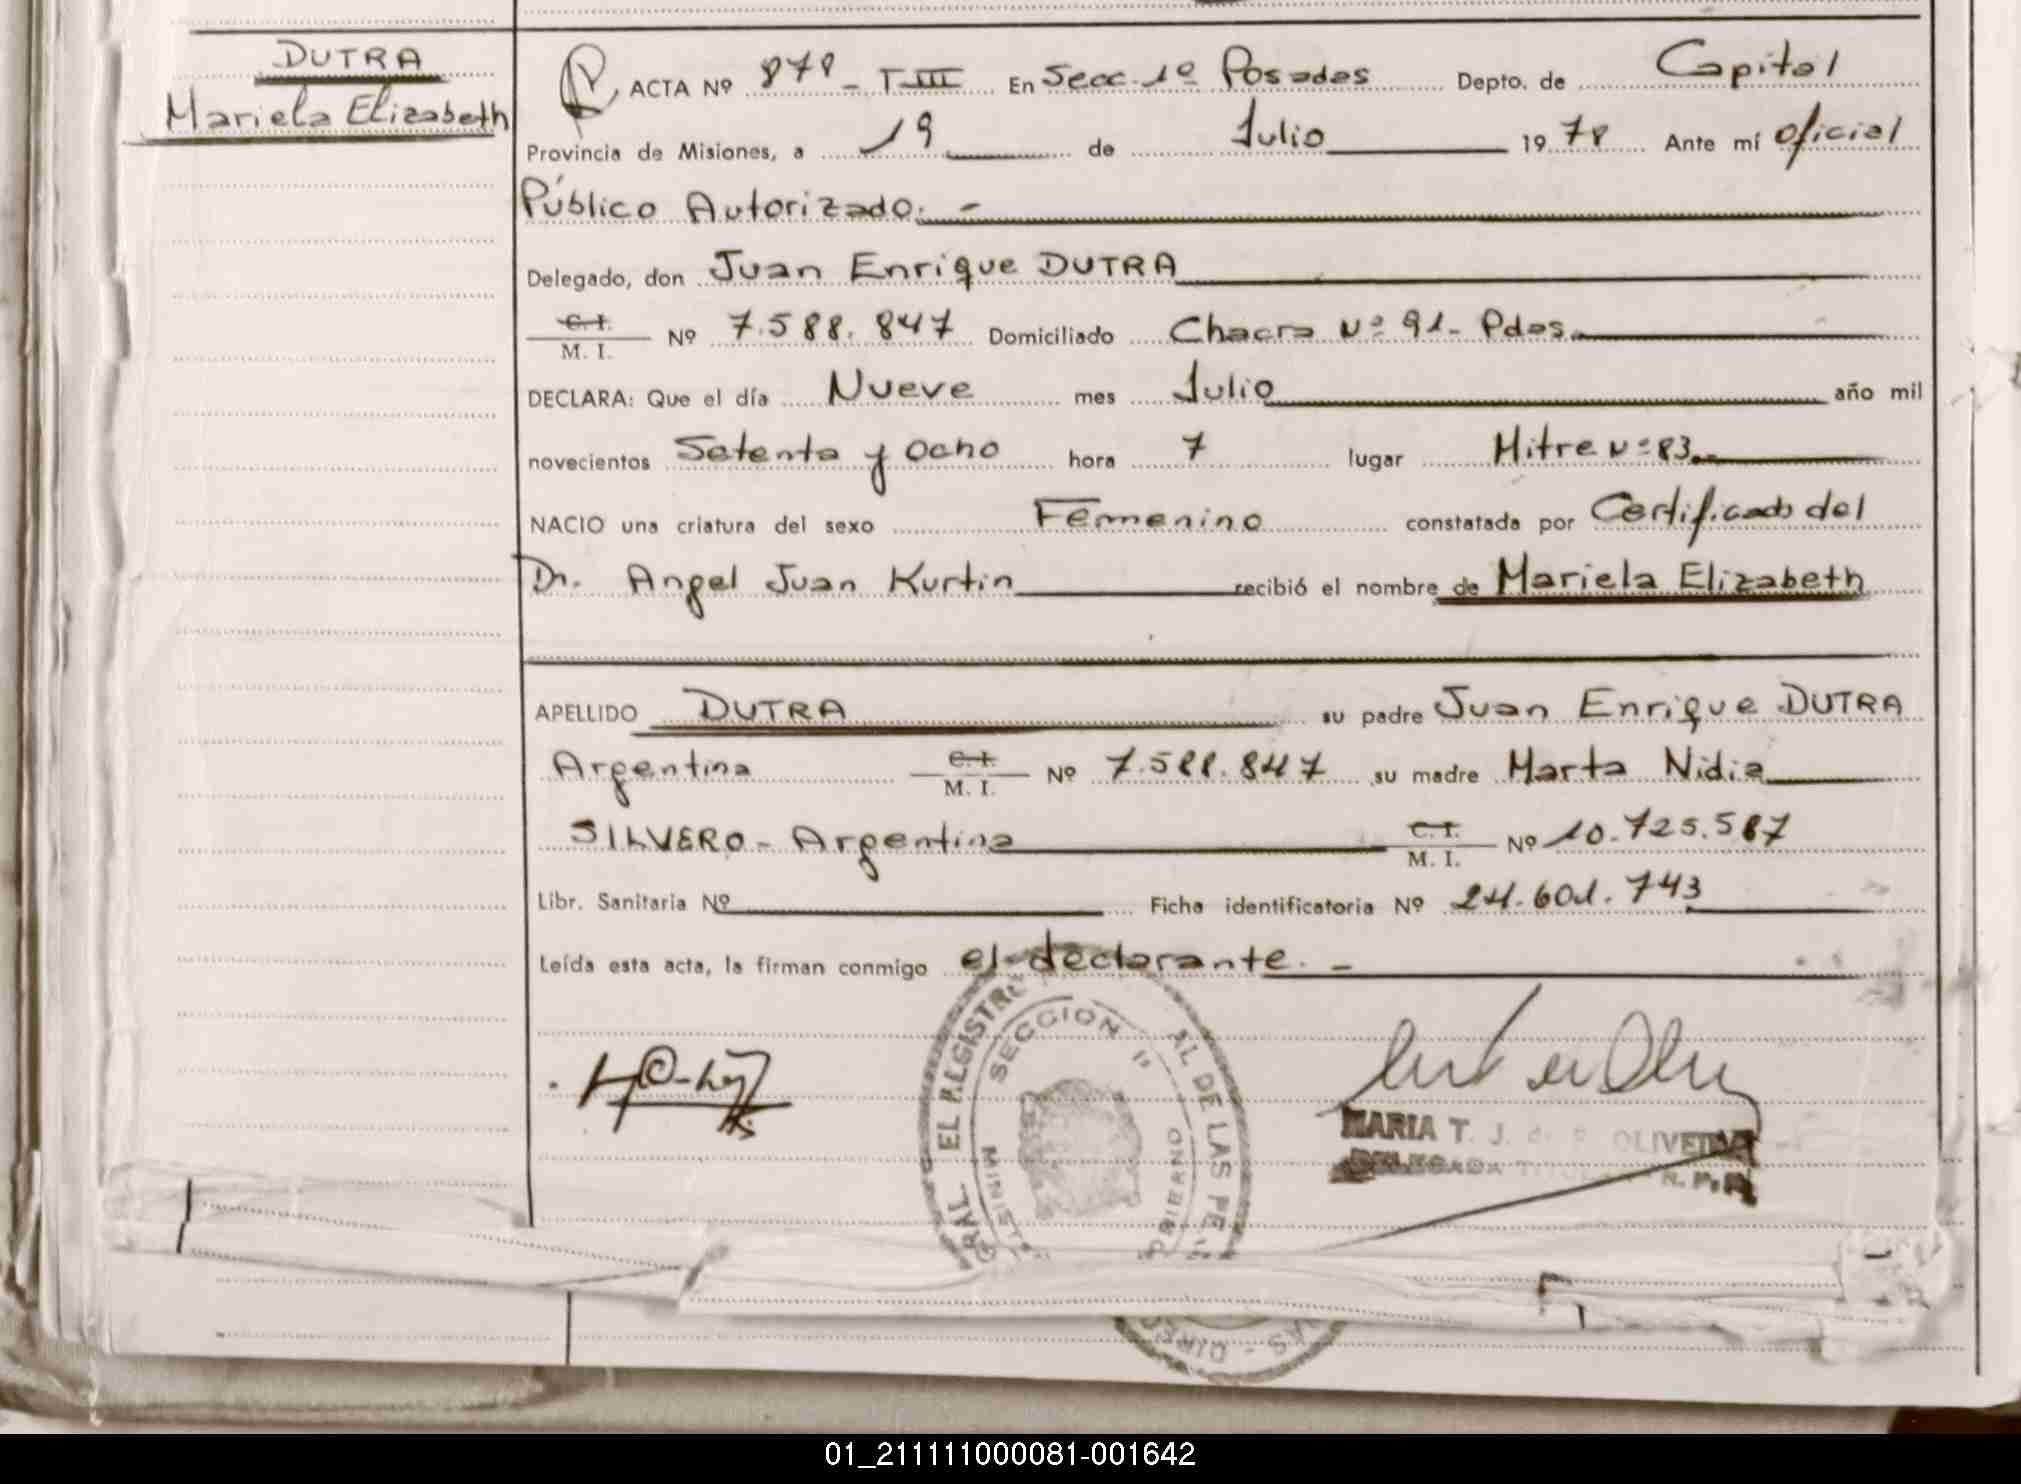 DUTRA
Mariela Elizabeth
ACTA Nº 878 - T-III En Secc. 1º Posadas Depto. de Capital
Provincia de Misiones, a 19 de Julio 1978 Ante mí oficial
Público Autorizado. -
Delegado, don Juan Enrique DUTRA
C. I.
M. I. Nº 7.588.847 Domiciliado Chacra Nº 91- Pdas.
DECLARA: Que el día Nueve mes Julio año mil
novecientos Setenta y Ocho hora 7 lugar Mitre Nº 83.-
NACIO una criatura del sexo Femenino constatada por Certificado del
Dr. Angel Juan Kurtin recibió el nombre de Mariela Elizabeth
APELLIDO DUTRA su padre Juan Enrique DUTRA
Argentina C. I. M. I. Nº 7.588.847 su madre Marta Nidia
SILVERO - Argentina C. I. M. I. Nº 10.725.587
Libr. Sanitaria Nº Ficha identificatoria Nº 24.601.743
Leída esta acta, la firman conmigo el declarante. -
SECCION 1ª
AL DE LAS PE
MARIA T. J. OLIVEIRA
DELEGADA
01_211111000081-001642